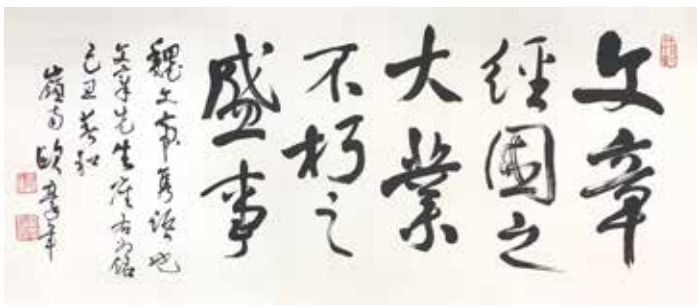 文章
經國之
大業
不朽之
盛事
魏文帝雋語也
文章先生座右為銘
己丑春
嶺南歐豪年